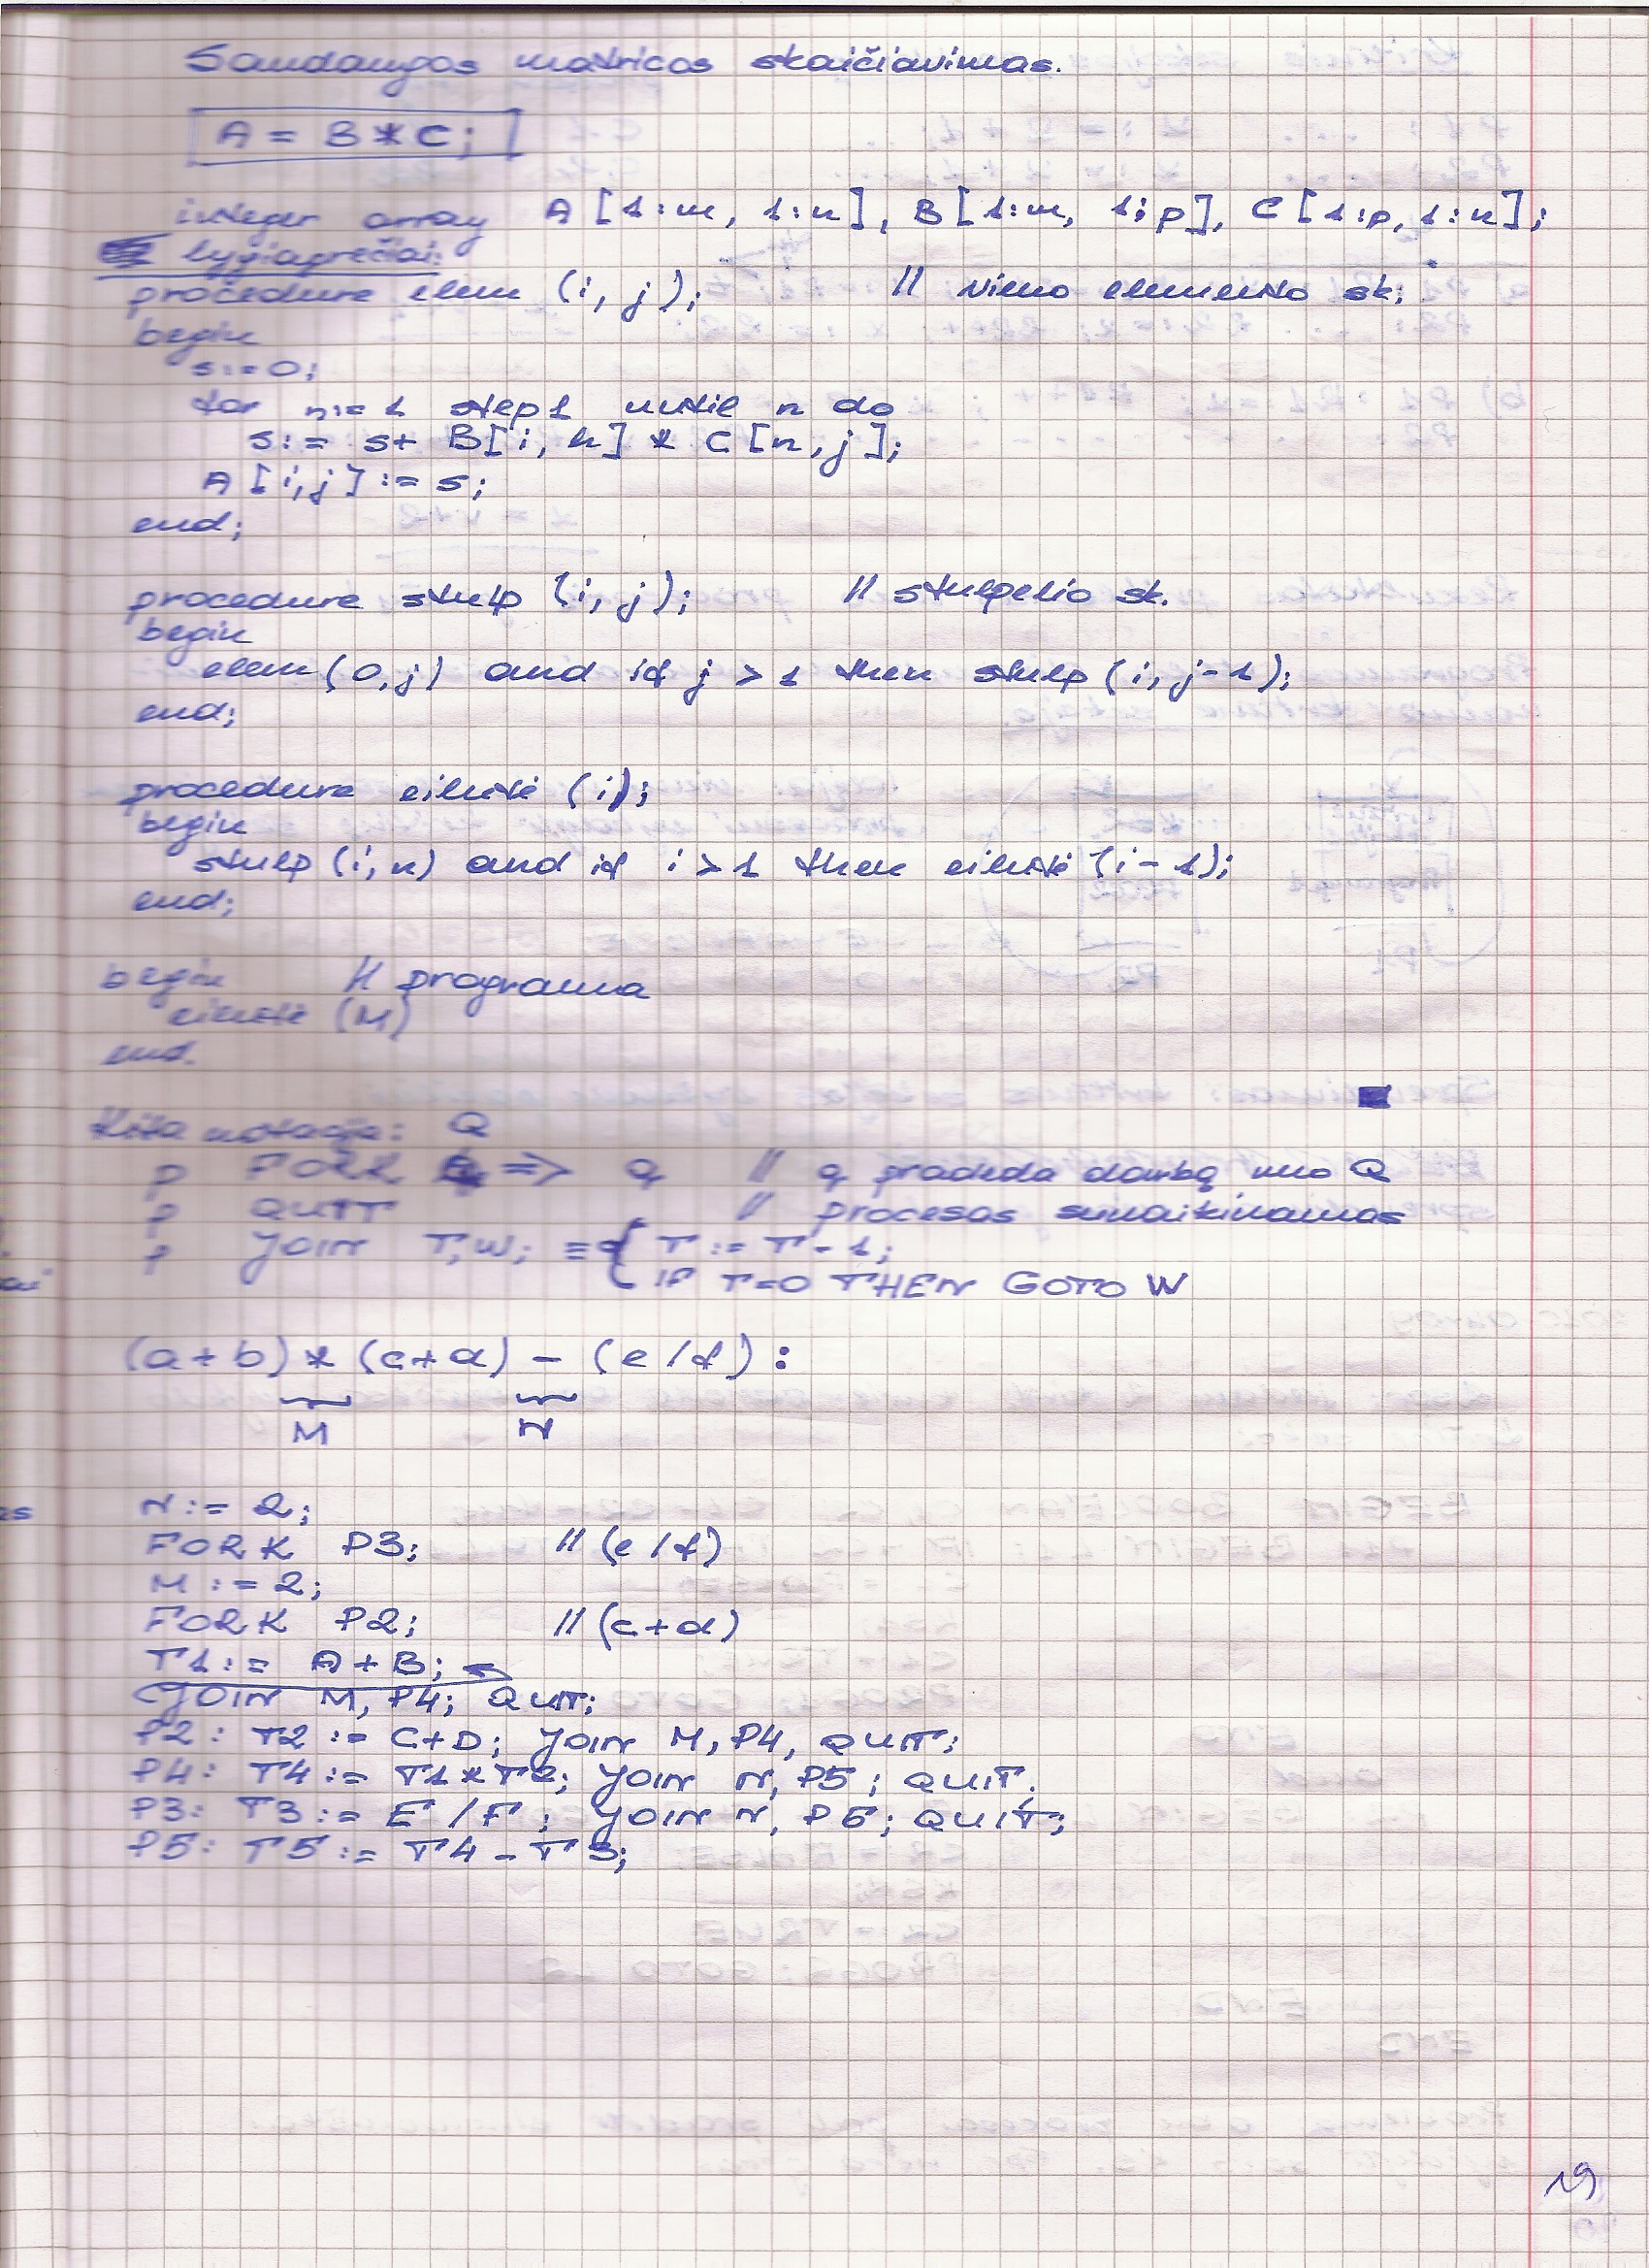 Sandaugos matricos skaičiavimas.
A = B * C;
integer array A [1:m, 1:n], B [1:m, 1:p], C [1:p, 1:n];
lygiagrečiai:
procedure elem (i, j); // vieno elemento sk.
begin
s:=0;
for n:=1 step1 until n do
s:= s+ B[i, k] * C [n, j];
A [i,j] := s;
end;
procedure stulp (i, j); // stulpelio sk.
begin
elem (0,j) and if j > 1 then stulp (i, j-1);
end;
procedure eilutė (i);
begin
stulp (i, n) and if i > 1 then eilutė (i - 1);
end;
begin // programa
eilutė (M)
end.
Kita notacija: Q
p FORK => q // q pradeda darbą nuo Q
p QUIT // procesas sunaikinamas
p JOIN T,W; ≡ { T := T - 1;
IF T=0 THEN GOTO W
(a + b) * (c + d) - (e / f) :
M N
N := 2;
FORK P3; // (e / f)
M := 2;
FORK P2; // (c + d)
T1 := A + B;
JOIN M, P4; QUIT;
P2: T2 := C+D; JOIN M, P4, QUIT;
P4: T4 := T1 * T2; JOIN N, P5; QUIT;
P3: T3 := E / F; JOIN N, P5; QUIT;
P5: T5 := T4 - T3;
19